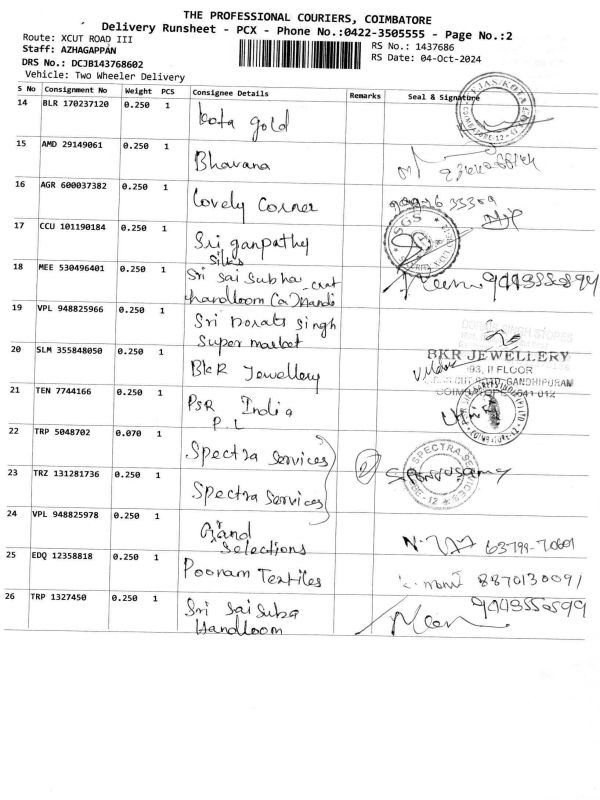 THE PROFESSIONAL COURIERS, COIMBATORE
Delivery Runsheet - PCX - Phone No.:0422-3505555 - Page No.:2
Route: XCUT ROAD III
Staff: AZHAGAPPAN
RS No.: 1437686
DRS No.: DCJB143768602
RS Date: 04-Oct-2024
Vehicle: Two Wheeler Delivery
S No Consignment No Weight PCS Consignee Details Remarks Seal & Signature
14 BLR 170237120 0.250 1 Kota gold
15 AMD 29149061 0.250 1 Bhavana
16 AGR 600037382 0.250 1 Lovely Corner
17 CCU 101190184 0.250 1 Sri ganpathy
silks
SGS
18 MEE 530496401 0.250 1 Sri Sai Subha
handloom
19 VPL 948825966 0.250 1 Sri Dorats Singh
Super market
20 SLM 355848050 0.250 1 BKR Jewellery
BKR JEWELLERY
II FLOOR
GANDHIPURAM
21 TEN 7744166 0.250 1 PSR India
P.L
22 TRP 5048702 0.070 1 Spectra Services
SPECTRA
23 TRZ 131281736 0.250 1 Spectra Services
2
24 VPL 948825978 0.250 1 Grand
Selections
25 EDQ 12358818 0.250 1 Poonam Textiles
8870130091
26 TRP 1327450 0.250 1 Sri Sai Suba
Handloom